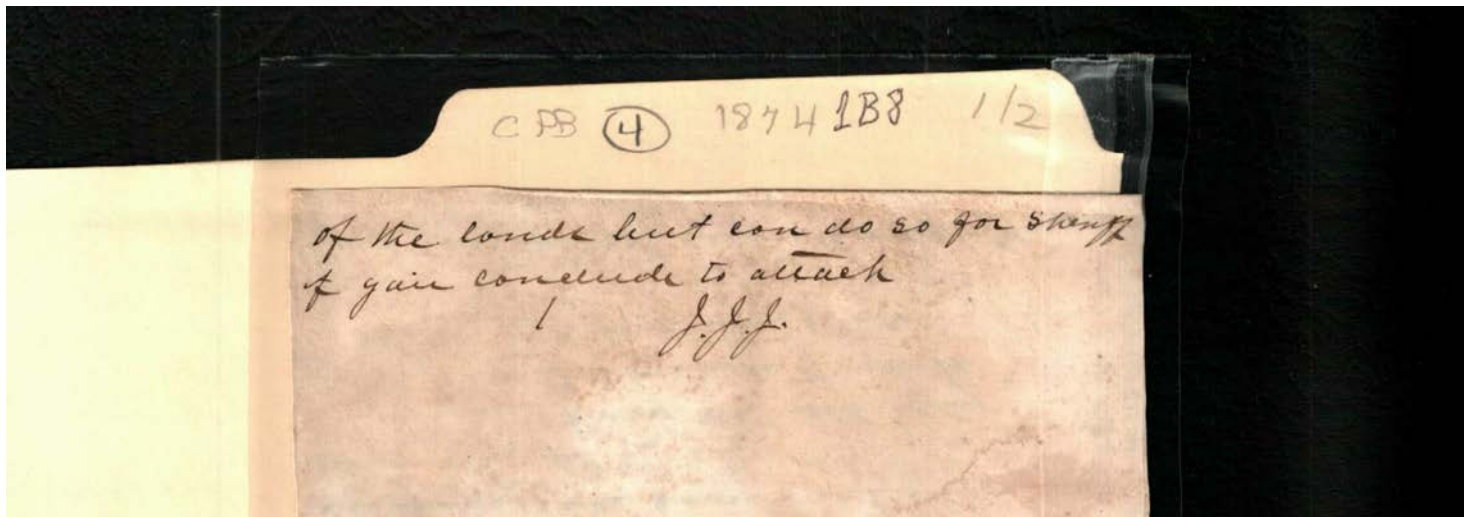 CPB 4 1874 1B8 1/2
of the lands but can do so for Sheriff
if you conclude to attach
J.J.J.